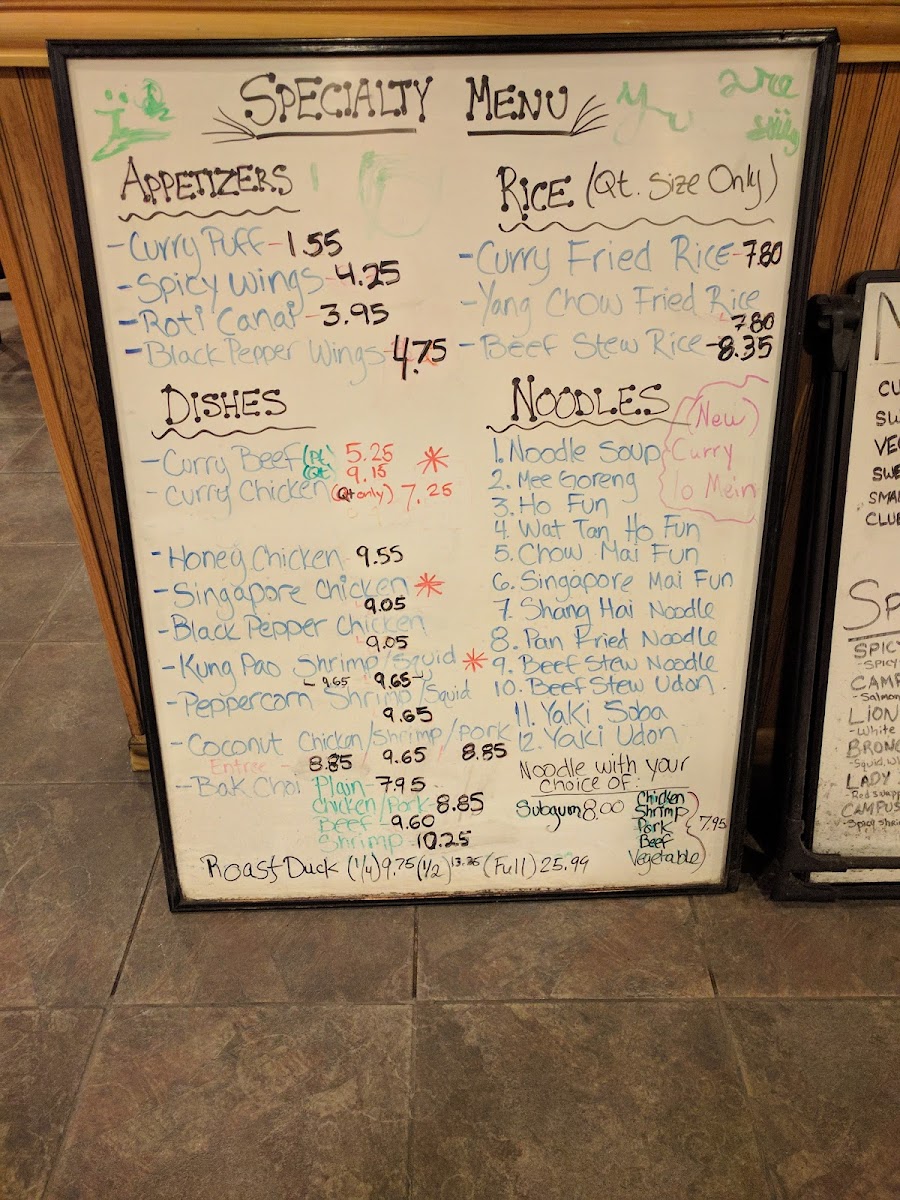 SPECIALTY MENU
APPETIZERS
-Curry Puff-1.55
-Spicy Wings-4.25
-Roti Canai-3.95
-Black Pepper Wings-4.75
DISHES
-Curry Beef (Pt) 5.25
(Qt) 9.15
-Curry Chicken (Qt only) 7.25
-Honey Chicken-9.55
-Singapore Chicken
9.05
-Black Pepper Chicken
9.05
-Kung Pao Shrimp/Squid
9.65 9.65
-Peppercorn Shrimp/Squid
9.65
-Coconut Chicken/Shrimp/Pork
Entree - 8.85 / 9.65 / 8.85
-Bak Choi Plain-7.95
Chicken/Pork-8.85
Beef-9.60
Shrimp-10.25
Roast Duck (1/4) 9.75 (1/2) 13.25 (Full) 25.99
RICE (Qt. Size Only)
-Curry Fried Rice-7.80
-Yang Chow Fried Rice
7.80
-Beef Stew Rice-8.35
NOODLES
(New)
Curry
lo Mein
1. Noodle Soup
2. Mee Goreng
3. Ho Fun
4. Wat Tan Ho Fun
5. Chow Mai Fun
6. Singapore Mai Fun
7. Shang Hai Noodle
8. Pan Fried Noodle
9. Beef Stew Noodle
10. Beef Stew Udon
11. Yaki Soba
12. Yaki Udon
Noodle with your
choice of:
Subgum 8.00
Chicken
Shrimp
Pork
Beef
Vegetable
7.95
SPICY
CAMP
-Salmon
LION
-White
BRONC
LADY
CAMPUS